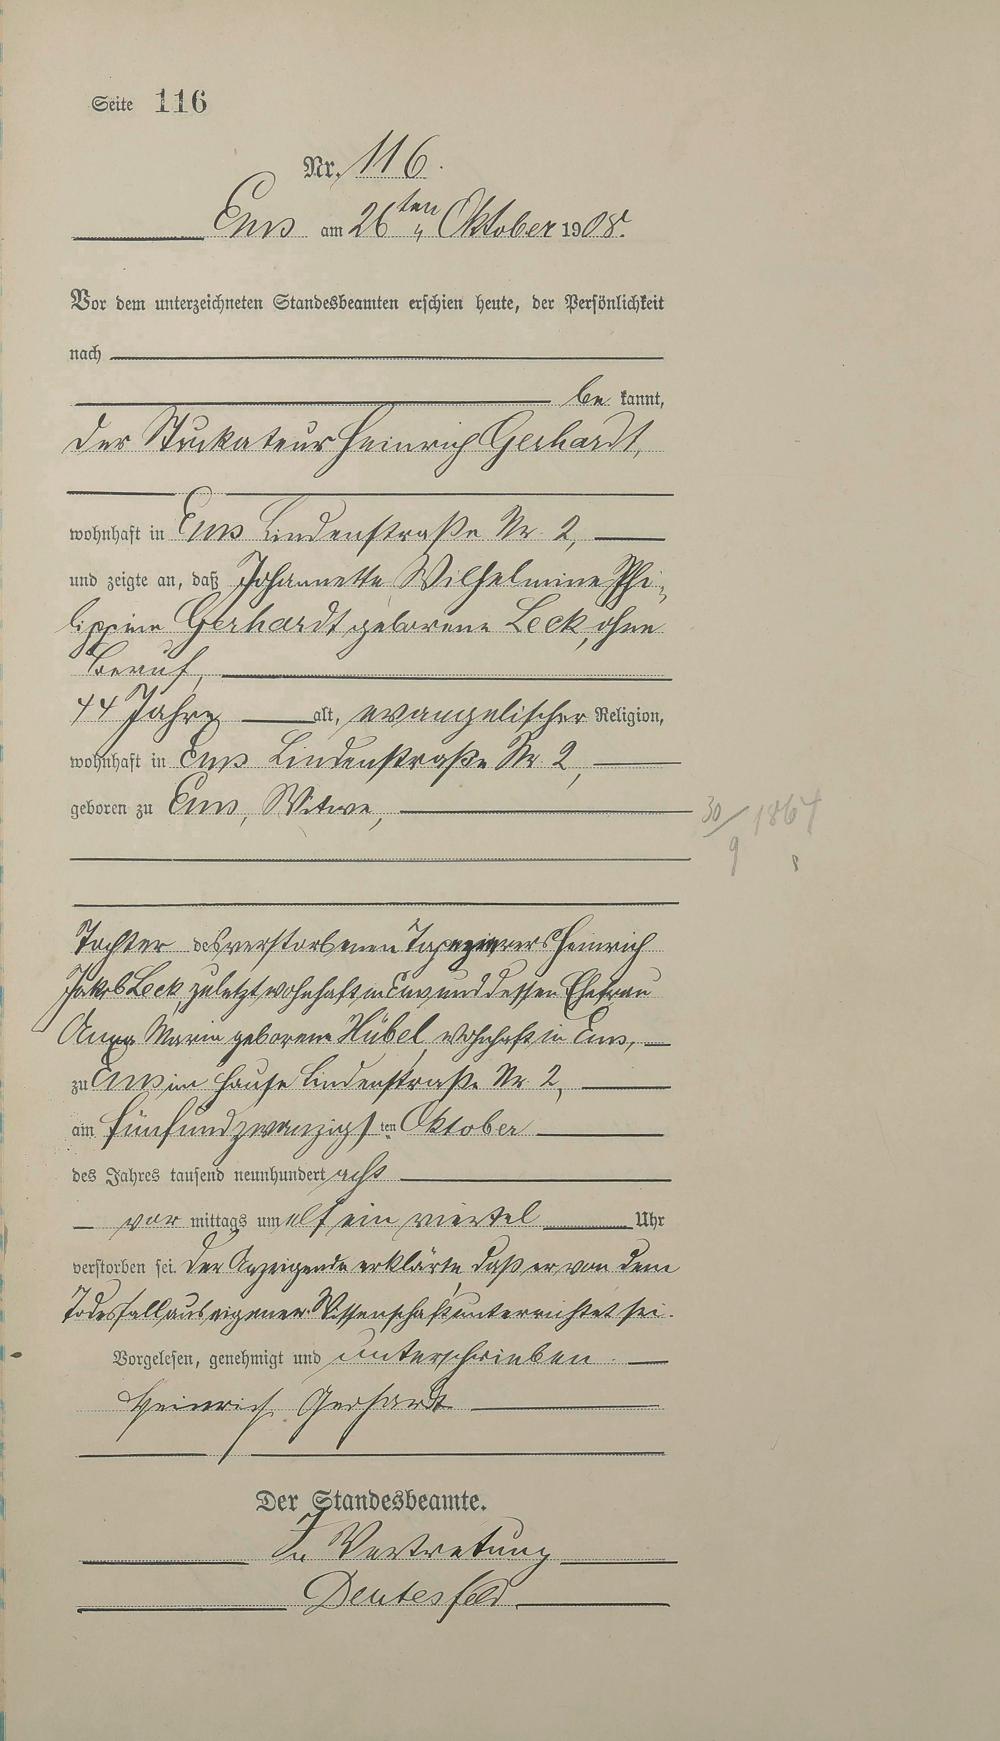 Seite 116
Nr. 116.
Ems am 26ten Oktober 1908.
Vor dem unterzeichneten Standesbeamten erschien heute, der Persönlichkeit
nach
be kannt,
der Stuckateur Heinrich Gerhardt,
wohnhaft in Ems Lindenstraße Nr. 2,
und zeigte an, daß Johannette Wilhelmine Phi-
lippine Gerhardt geborene Leck, ohne
Beruf,
44 Jahre alt, evangelischer Religion,
wohnhaft in Ems Lindenstraße Nr. 2,
geboren zu Ems, Witwe,
30/9 1864
Tochter des verstorbenen Tapezierers Heinrich
Jakob Leck, zuletzt wohnhaft in Ems und dessen Ehefrau
Anna Maria geborene Hübel, wohnhaft in Ems,
zu Ems im Hause Lindenstraße Nr. 2,
am fünfundzwanzigsten Oktober
des Jahres tausend neunhundert acht
vor mittags um elf ein viertel Uhr
verstorben sei. Der Anzeigende erklärte, daß er von dem
Todesfall aus eigener Wissenschaft unterrichtet sei.
Vorgelesen, genehmigt und unterschrieben.
Heinrich Gerhardt
Der Standesbeamte.
In Vertretung